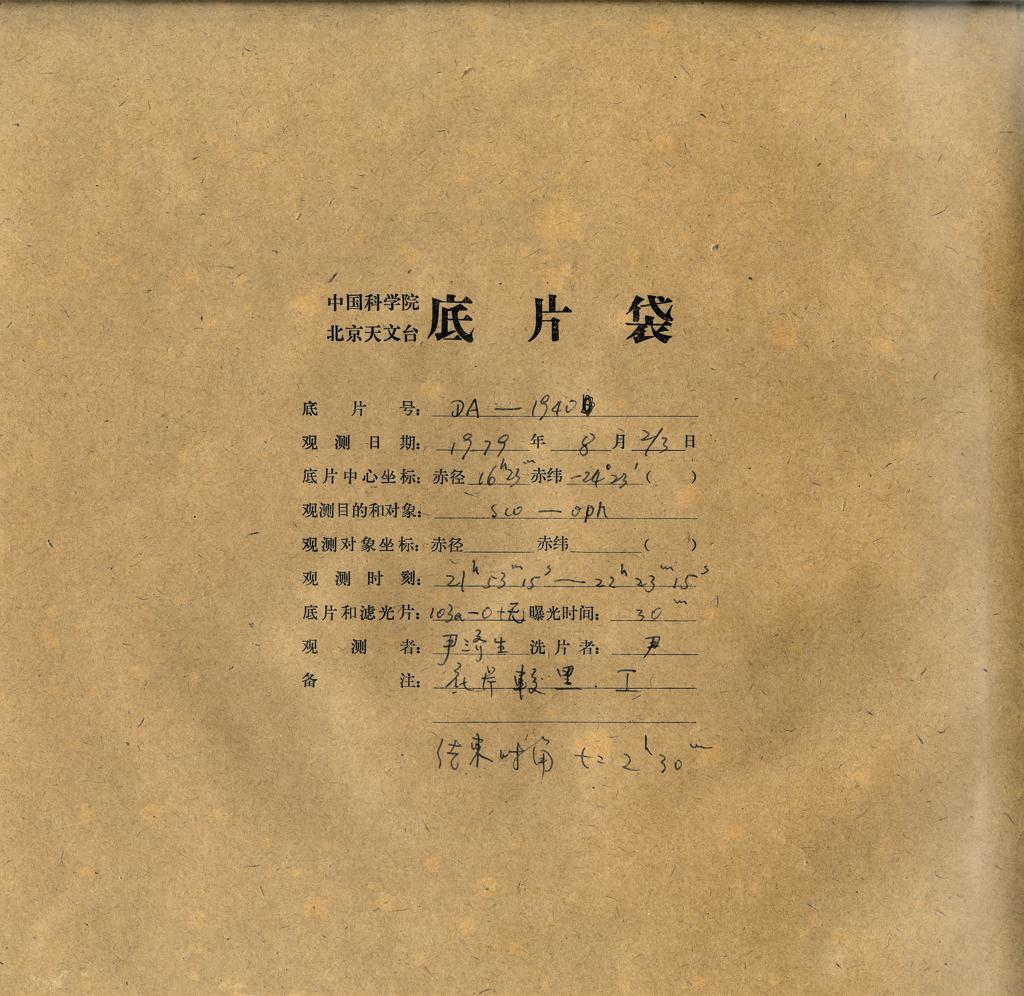 中国科学院
北京天文台
底片袋
底片号: DA — 1940
观测日期: 1979 年 8 月 2/3 日
底片中心坐标: 赤径 16ʰ23ᵐ 赤纬 -24°23′ ( )
观测目的和对象: sco — oph
观测对象坐标: 赤径 赤纬 ( )
观测时刻: 21ʰ 53ᵐ 15ˢ — 22ʰ 23ᵐ 15ˢ
底片和滤光片: 103a-O+无 曝光时间: 30ᵐ
观测者: 尹泽生 洗片者: 尹
备注: 底片較黑. I
结束时角 t= 2ʰ30ᵐ